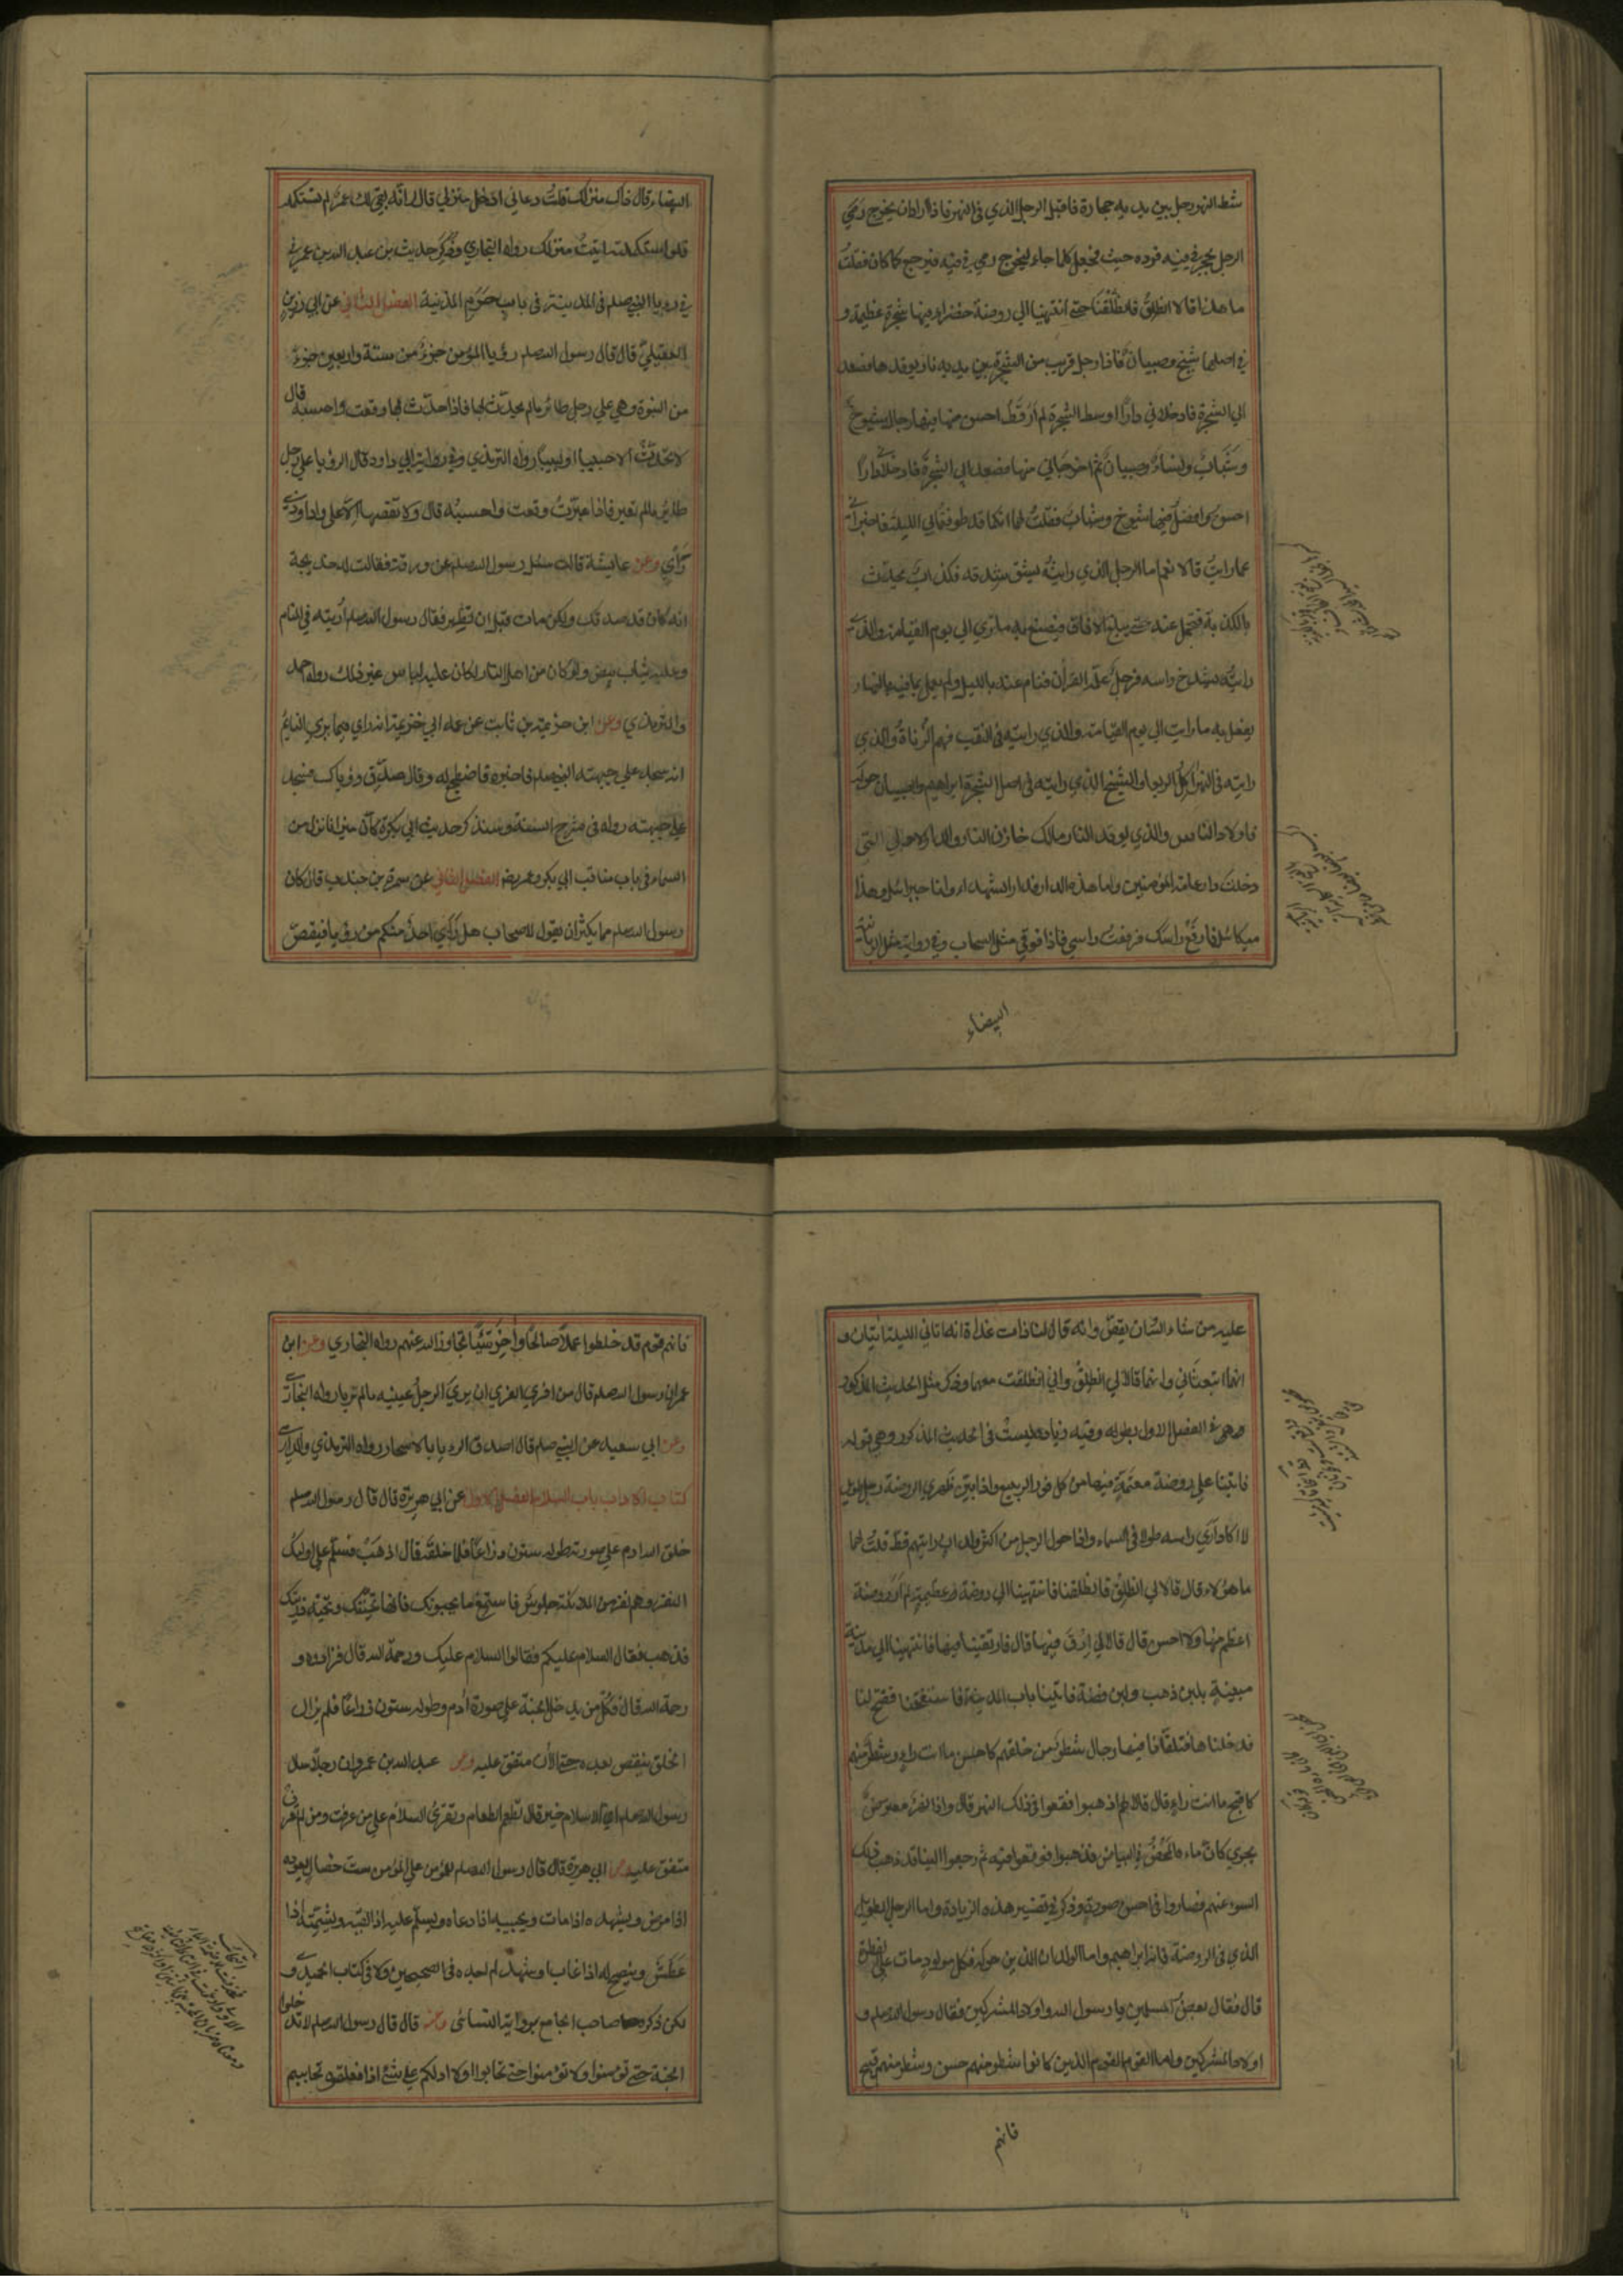 شط النهر رجل بين يديه حجارة فاقبل الرجل الذي في النهر فاذا اراد ان يخرج رمي
الرجل بحجر في فيه فرده حيث فجعل كلما جاء ليخرج رمي في فيه فيرجع كما كان فقلت
ما هذا قالا انطلق فانطلقنا حتي انتهينا الي روضة خضراء فيها شجرة عظيمة و
في اصلها شيخ وصبيان فاذا رجل قريب من الشجرة بين يديه نار يوقدها فصعدا
الي الشجرة فادخلاني دارا اوسط الشجرة لم ار قط احسن منها فيها رجال شيوخ
وشباب ونساء وصبيان ثم اخرجاني منها فصعدا الي الشجرة فادخلا دارا
احسن وافضل فيها شيوخ وشباب فقلت لهما انكما قد طوفتماني الليلة فاخبراني
عما رايت قالا نعم اما الرجل الذي رايته يشق شدقه فكذاب يحدث
بالكذبة فتحمل عنه حتي يبلغ الافاق فيصنع به ما تري الي يوم القيامة والذي
رايته يشدخ راسه فرجل علمه القران فنام عنه بالليل ولم يعمل بما فيه بالنهار
يفعل به ما رايت الي يوم القيامة والذي رايته في النقب فهم الزناة والذي
رايته في النهر اكل الربوا والشيخ الذي رايته في اصل الشجرة ابراهيم والصبيان حوله
فاولاد الناس والذي يوقد النار مالك خازن النار والدار الاولي التي
دخلت دار عامة المؤمنين واما هذه الدار فدار الشهداء وانا جبرائيل وهذا
ميكائيل فارفع راسك فرفعت راسي فاذا فوقي مثل السحاب وفي رواية مثل الربابة
البيضاء
البيضاء قال ذاك منزلك قلت دعاني ادخل منزلي قال انه بقي لك عمر لم تستكمله
فلو استكملته اتيت منزلك رواه البخاري وذكر حديث بن عبد الله بن عمر في
في رويا النبي صلم في المدينة في باب حرم المدينة الفصل الثاني عن ابي رزين
العقيلي قال قال رسول الله صلم رؤيا المؤمن جزء من ستة واربعين جزء
من النبوة وهي علي رجل طائر ما لم يحدث بها فاذا حدث بها وقعت واحسبه قال
لا تحدث الا حبيبا او لبيبا رواه الترمذي وفي رواية ابي داود قال الرؤيا علي رجل
طاير ما لم تعبر فاذا عبرت وقعت واحسبه قال ولا تقصها الا علي واد او ذي
رأي وعن عايشة قالت سئل رسول الله صلم عن ورقة فقالت له خديجة
انه كان قد صدقك ولكن مات قبل ان تظهر فقال رسول الله صلم اريته في المنام
وعليه ثياب بيض ولو كان من اهل النار لكان عليه لباس غير ذلك رواه احمد
والترمذي وعن ابن خزيمة بن ثابت عن عمه ابي خزيمة انه راي فيما يري النايم
انه سجد علي جبهة النبي صلم فاخبره فاضطجع له وقال صدق رؤياك فسجد
علي جبهته رواه في شرح السنة وسنذكر حديث ابي بكرة كان ميزانا نزل من
السماء في باب مناقب ابي بكر وعمر رض الفصل الثالث عن سمرة بن جندب قال كان
رسول الله صلم مما يكثر ان يقول لاصحابه هل راي احد منكم من رؤيا فيقص
عليه من شاء الله ان يقص وانه قال لنا ذات غداة انه اتاني الليلة اتيان و
انهما ابتعثاني وانهما قالا لي انطلق واني انطلقت معهما وذكر مثل الحديث المذكور
في الفصل الاول بطوله وفيه زيادة ليست في الحديث المذكور وهي قوله
فاتينا علي روضة معتمة فيها من كل نور الربيع واذا بين ظهري الروضة رجل طويل
لا اكاد اري راسه طولا في السماء واذا حول الرجل من اكثر ولدان رايتهم قط قلت لهما
ما هؤلاء قال قالا لي انطلق فانطلقنا فانتهينا الي روضة عظيمة لم ار روضة
اعظم منها ولا احسن قال قالا لي ارق فيها قال فارتقينا فيها فانتهينا الي مدينة
مبنية بلبن ذهب ولبن فضة فاتينا باب المدينة فاستفتحنا ففتح لنا
فدخلناها فتلقانا فيها رجال شطر من خلقهم كاحسن ما انت راء وشطر منهم
كاقبح ما انت راء قال قالا لهم اذهبوا فقعوا في ذلك النهر قال واذا نهر معترض
يجري كان ماءه المحض في البياض فذهبوا فوقعوا فيه ثم رجعوا الينا قد ذهب ذلك
السوء عنهم فصاروا في احسن صورة وذكر في تفسير هذه الزيادة واما الرجل الطويل
الذي في الروضة فانه ابراهيم واما الولدان الذين حوله فكل مولود مات علي الفطرة
قال فقال بعض المسلمين يا رسول الله واولاد المشركين فقال رسول الله صلم و
اولاد المشركين واما القوم الذين كانوا شطر منهم حسن وشطر منهم قبيح
فانهم
فانهم قوم قد خلطوا عملا صالحا وآخر سيئا تجاوز الله عنهم رواه البخاري وعن ابن
عمر ان رسول الله صلم قال من افري الفري ان يري الرجل عينيه ما لم تريا رواه البخاري
وعن ابي سعيد عن النبي صلم قال اصدق الرؤيا بالاسحار رواه الترمذي والدارمي
كتاب الاداب باب السلام الفصل الاول عن ابي هريرة قال قال رسول الله صلم
خلق الله ادم علي صورته طوله ستون ذراعا فلما خلقه قال اذهب فسلم علي اولئك
النفر وهم نفر من الملائكة جلوس فاستمع ما يحيونك فانها تحيتك وتحية ذريتك
فذهب فقال السلام عليكم فقالوا السلام عليك ورحمة الله قال فزادوه و
رحمة الله قال فكل من يدخل الجنة علي صورة ادم وطوله ستون ذراعا فلم يزل
الخلق ينقص بعده حتي الان متفق عليه وعن عبد الله بن عمرو ان رجلا سال
رسول الله صلم اي الاسلام خير قال تطعم الطعام وتقرئ السلام علي من عرفت ومن لم تعرف
متفق عليه وعن ابي هريرة قال قال رسول الله صلم للمؤمن علي المؤمن ست خصال يعوده
اذا مرض ويشهده اذا مات ويجيبه اذا دعاه ويسلم عليه اذا لقيه ويشمته اذا
عطس وينصح له اذا غاب او شهد لم اجده في الصحيحين ولا في كتاب الحميدي و
لكن ذكره صاحب الجامع برواية النسائي وعنه قال قال رسول الله صلم لا تدخلوا
الجنة حتي تؤمنوا ولا تؤمنوا حتي تحابوا اولا ادلكم علي شئ اذا فعلتموه تحاببتم